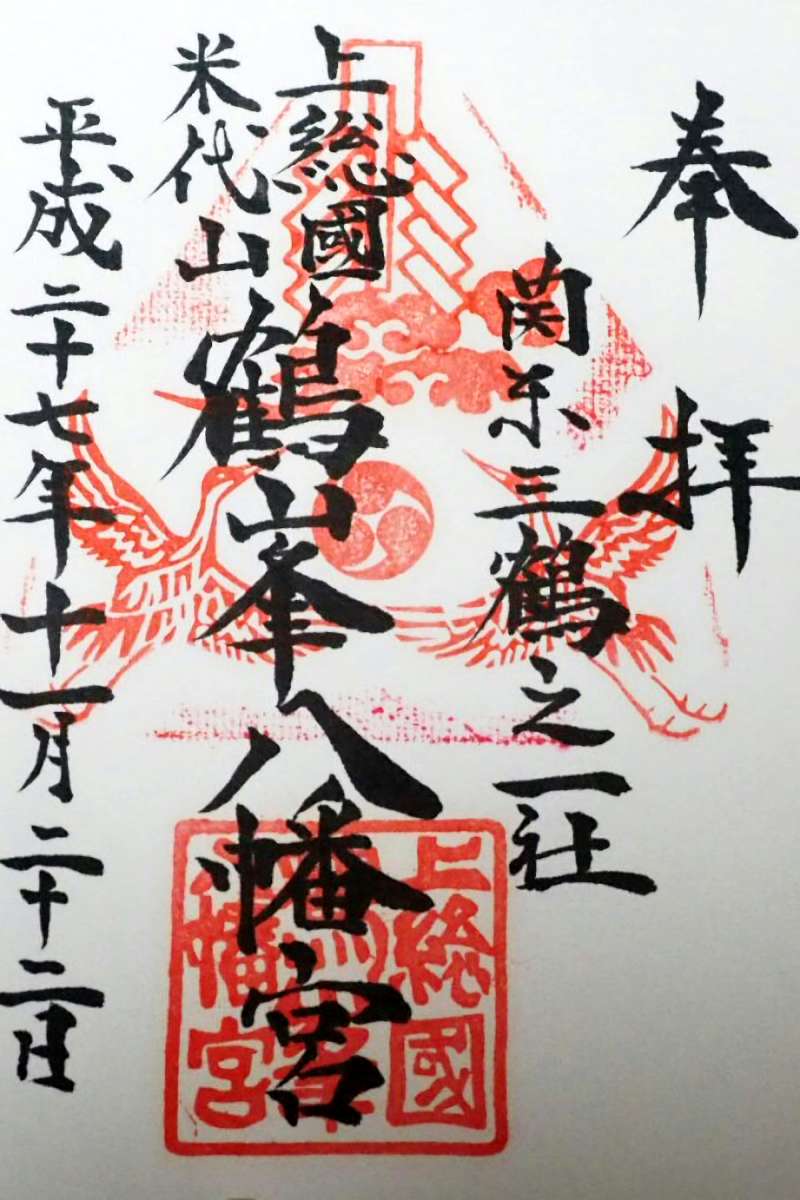 奉拝
関東三鶴之一社
上総國
米代山
鶴峯八幡宮
平成二十七年十一月二十二日
上総國
八幡宮